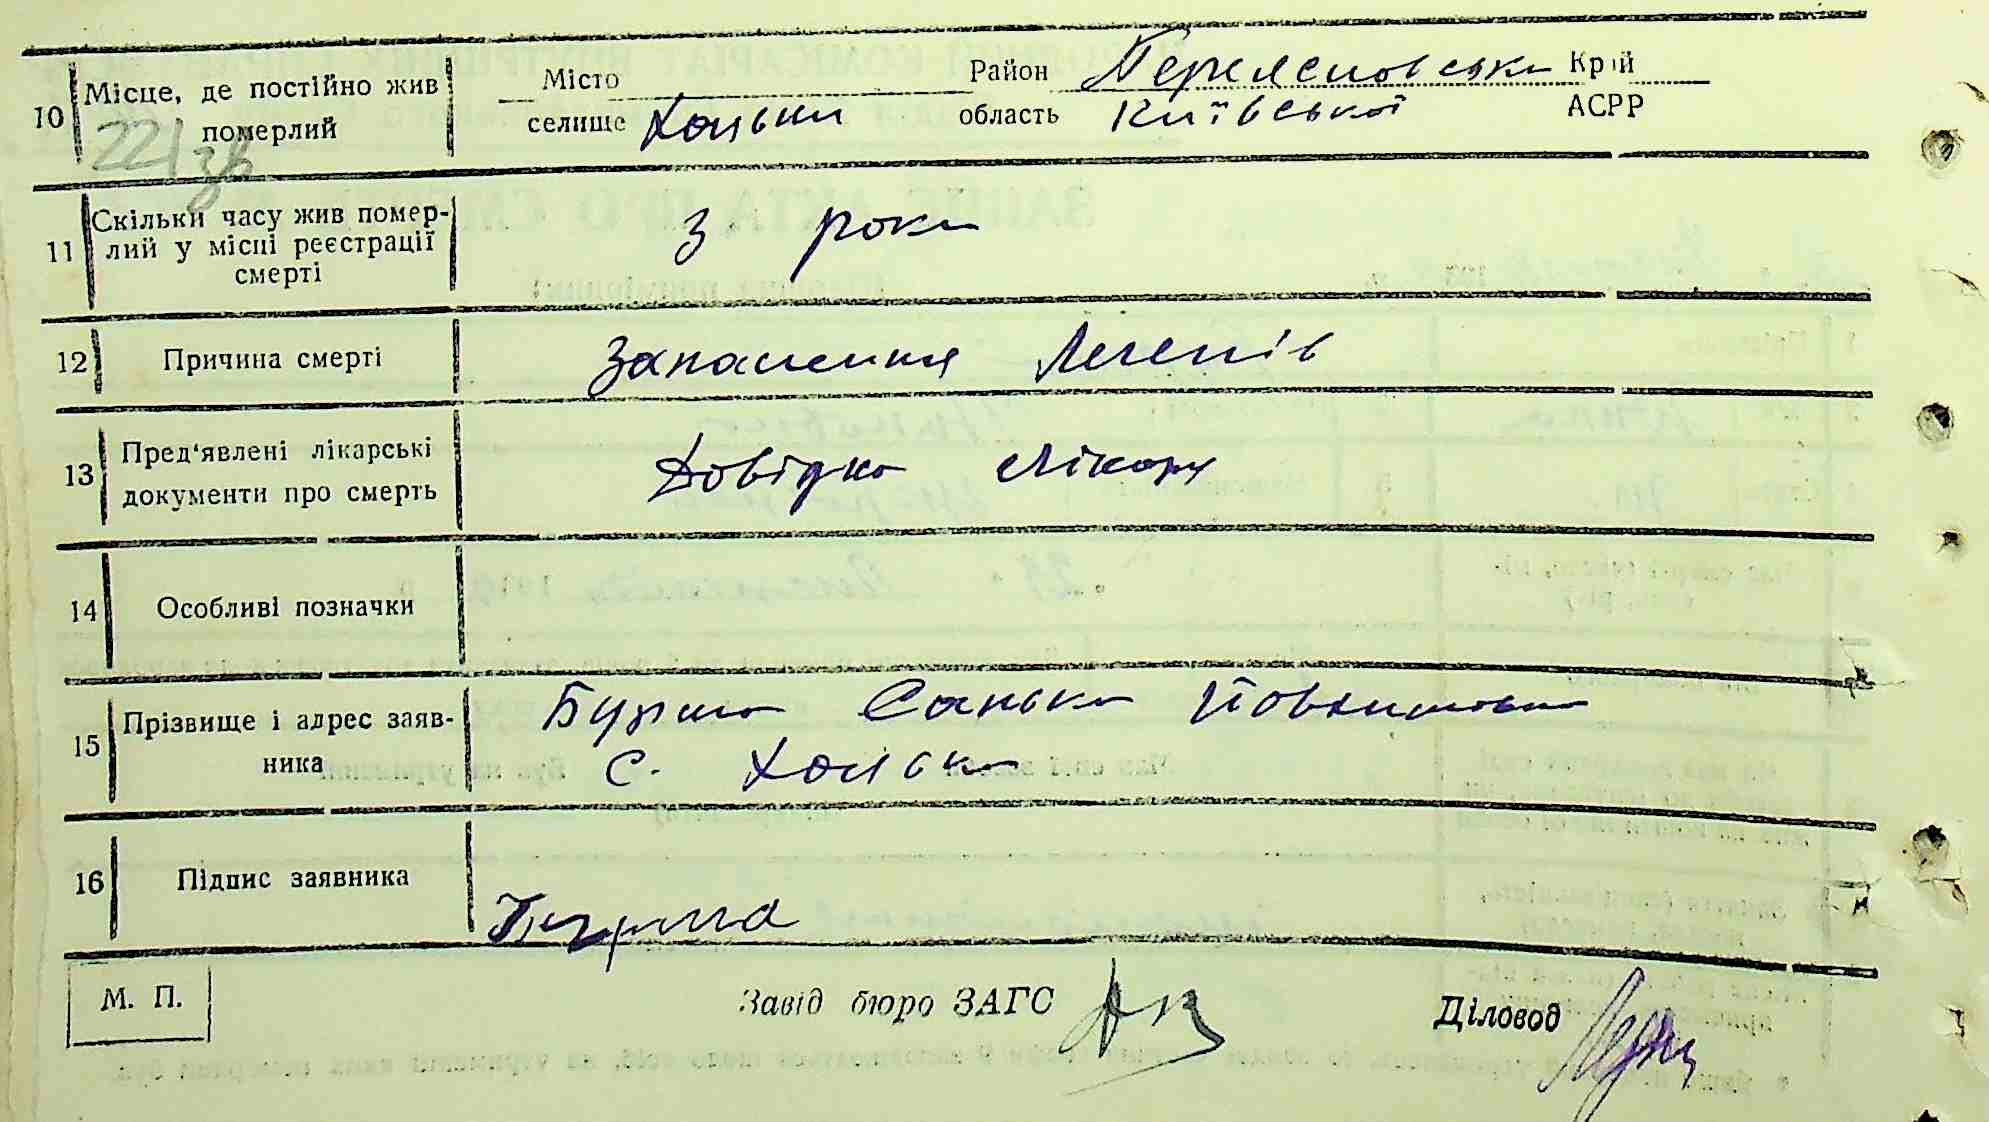 10 Місце, де постійно жив Місто Район Переяславська Крій
221 зв померлий селище Хоцьки область Київської АСРР
11 Скільки часу жив помер-
лий у місці реєстрації
смерті
3 роки
12 Причина смерті Запалення легенів
13 Пред'явлені лікарські
документи про смерть
Довідка лікаря
14 Особливі позначки
15 Прізвище і адрес заяв-
ника
Бурма Санька Йовхимовна
с. Хоцьки
16 Підпис заявника Бурма
М. П. Завід бюро ЗАГС Діловод